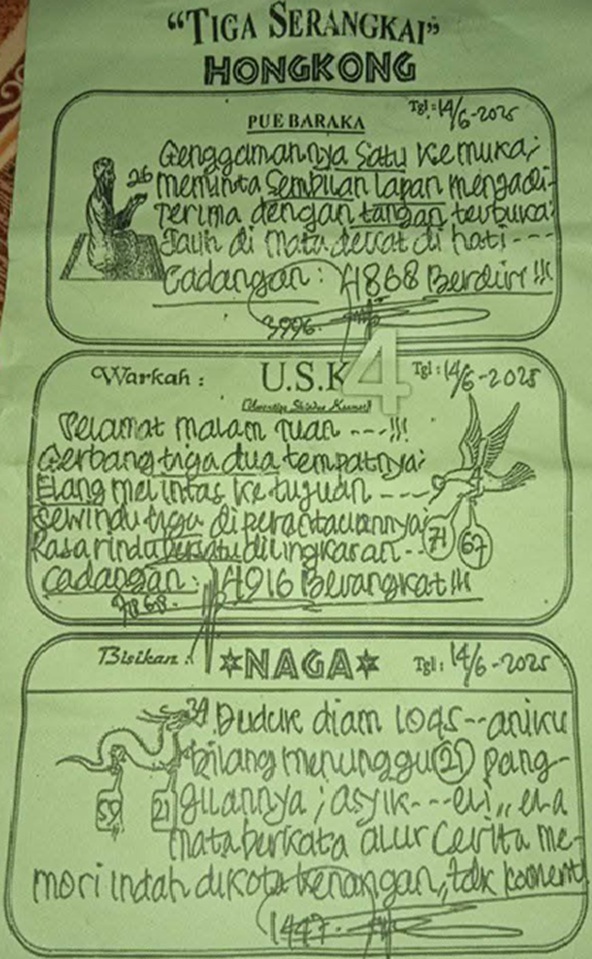 “TIGA SERANGKAI”
HONGKONG
Tgl: 14/6-2025
PUE BARAKA
Genggamannya Satu Kemuka;
26 meminta Sembilan lapan mengadi-
Terima dengan tangan terbuka;
Jauh di Mata dekat di hati ---
Cadangan: 4868 Berdiri !!!
3996
4
Warkah : U.S.K Tgl: 14/6-2025
Selamat malam Tuan ---!!!
Gerbang tiga dua tempatnya;
Elang melintas ke tujuan ---
Sewindu tiga di perantauannya;
Rasa rindu bersatu di lingkaran --
71 67
Cadangan: 4916 Berangkat !!!
7868
Bisikan : NAGA Tgl: 14/6-2025
39 Duduk diam loqs--aniku
bilang menunggu 21 pang-
59 21 gilannya ; asyik---eii,, ena
mata berkata alur Cerita me-
mori indah dikota kenangan,, tak koment
1447